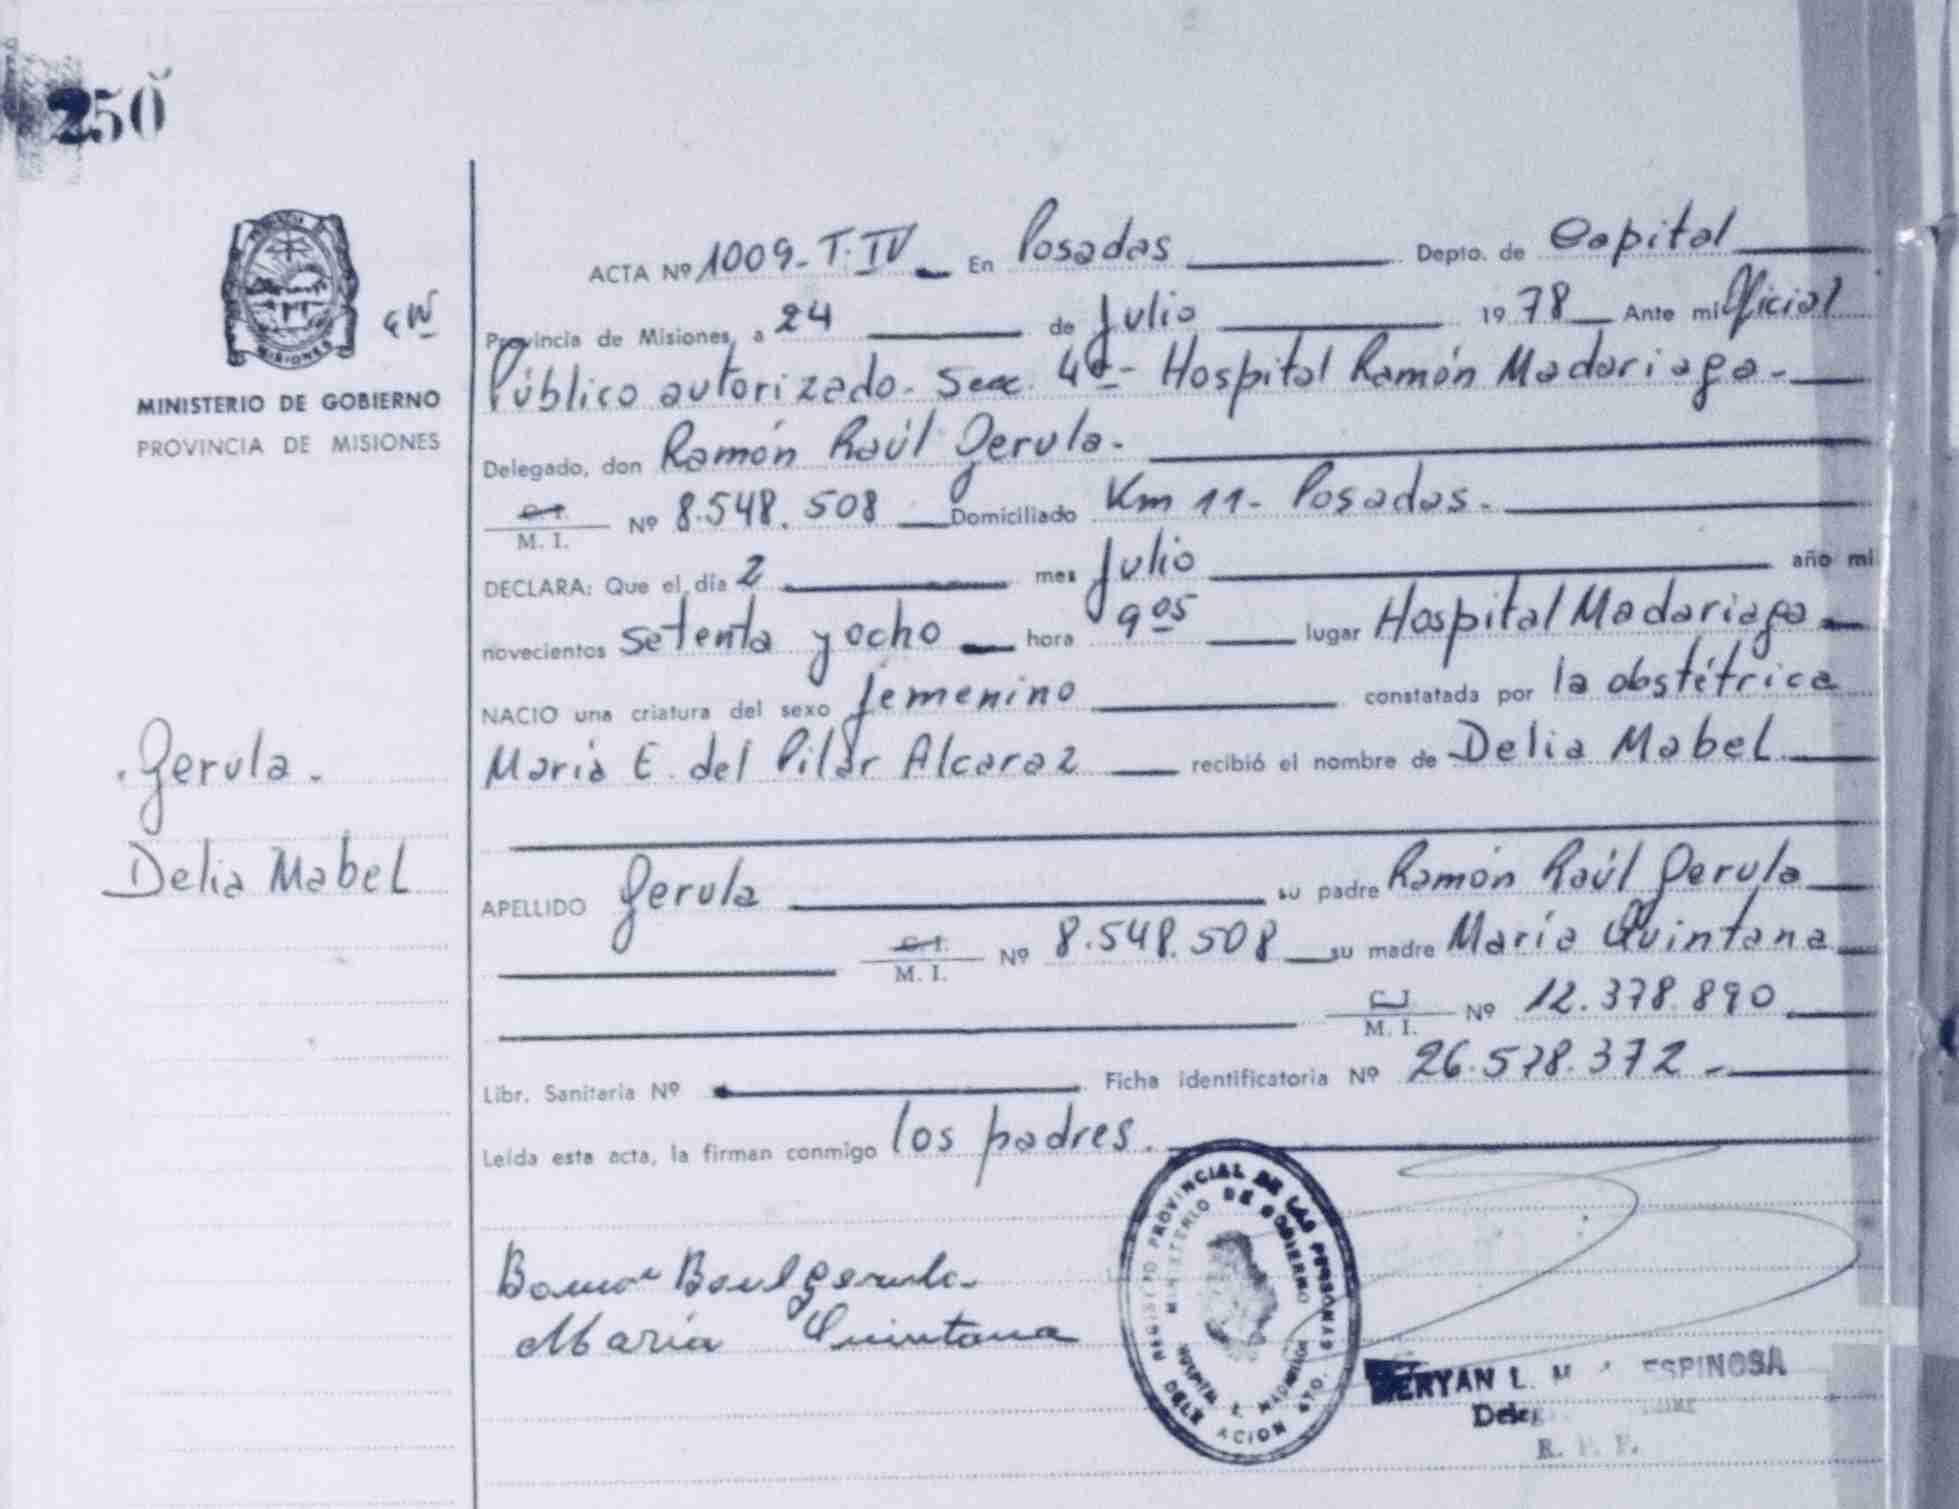 250
ACTA Nº 1009-T.IV En Posadas Depto. de Capital
Provincia de Misiones, a 24 de Julio 1978 Ante mi Oficial
Público autorizado. Secc. 4ª - Hospital Ramón Madariaga-
MINISTERIO DE GOBIERNO
PROVINCIA DE MISIONES
MISIONES
Delegado, don Ramón Raúl Gerula.
C. I. M. I. Nº 8.548.508 Domiciliado Km 11- Posadas.
DECLARA: Que el día 2 mes Julio año mil
novecientos setenta y ocho hora 9 05 lugar Hospital Madariaga
NACIO una criatura del sexo femenino constatada por la obstétrica
María E. del Pilar Alcaraz recibió el nombre de Delia Mabel
Gerula.
Delia Mabel
APELLIDO Gerula su padre Ramón Raúl Gerula
C. I. M. I. Nº 8.548.508 su madre María Quintana
C. I. M. I. Nº 12.378.890
Libr. Sanitaria Nº Ficha identificatoria Nº 26.578.372 -
Leída esta acta, la firman conmigo los padres.
Raul Gerula
María Quintana
REGISTRO PROVINCIAL DE LAS PERSONAS
MINISTERIO DE GOBIERNO
HOSPITAL R. MADARIAGA
DELEGACION 4TO.
ESPINOSA
R. P. P.